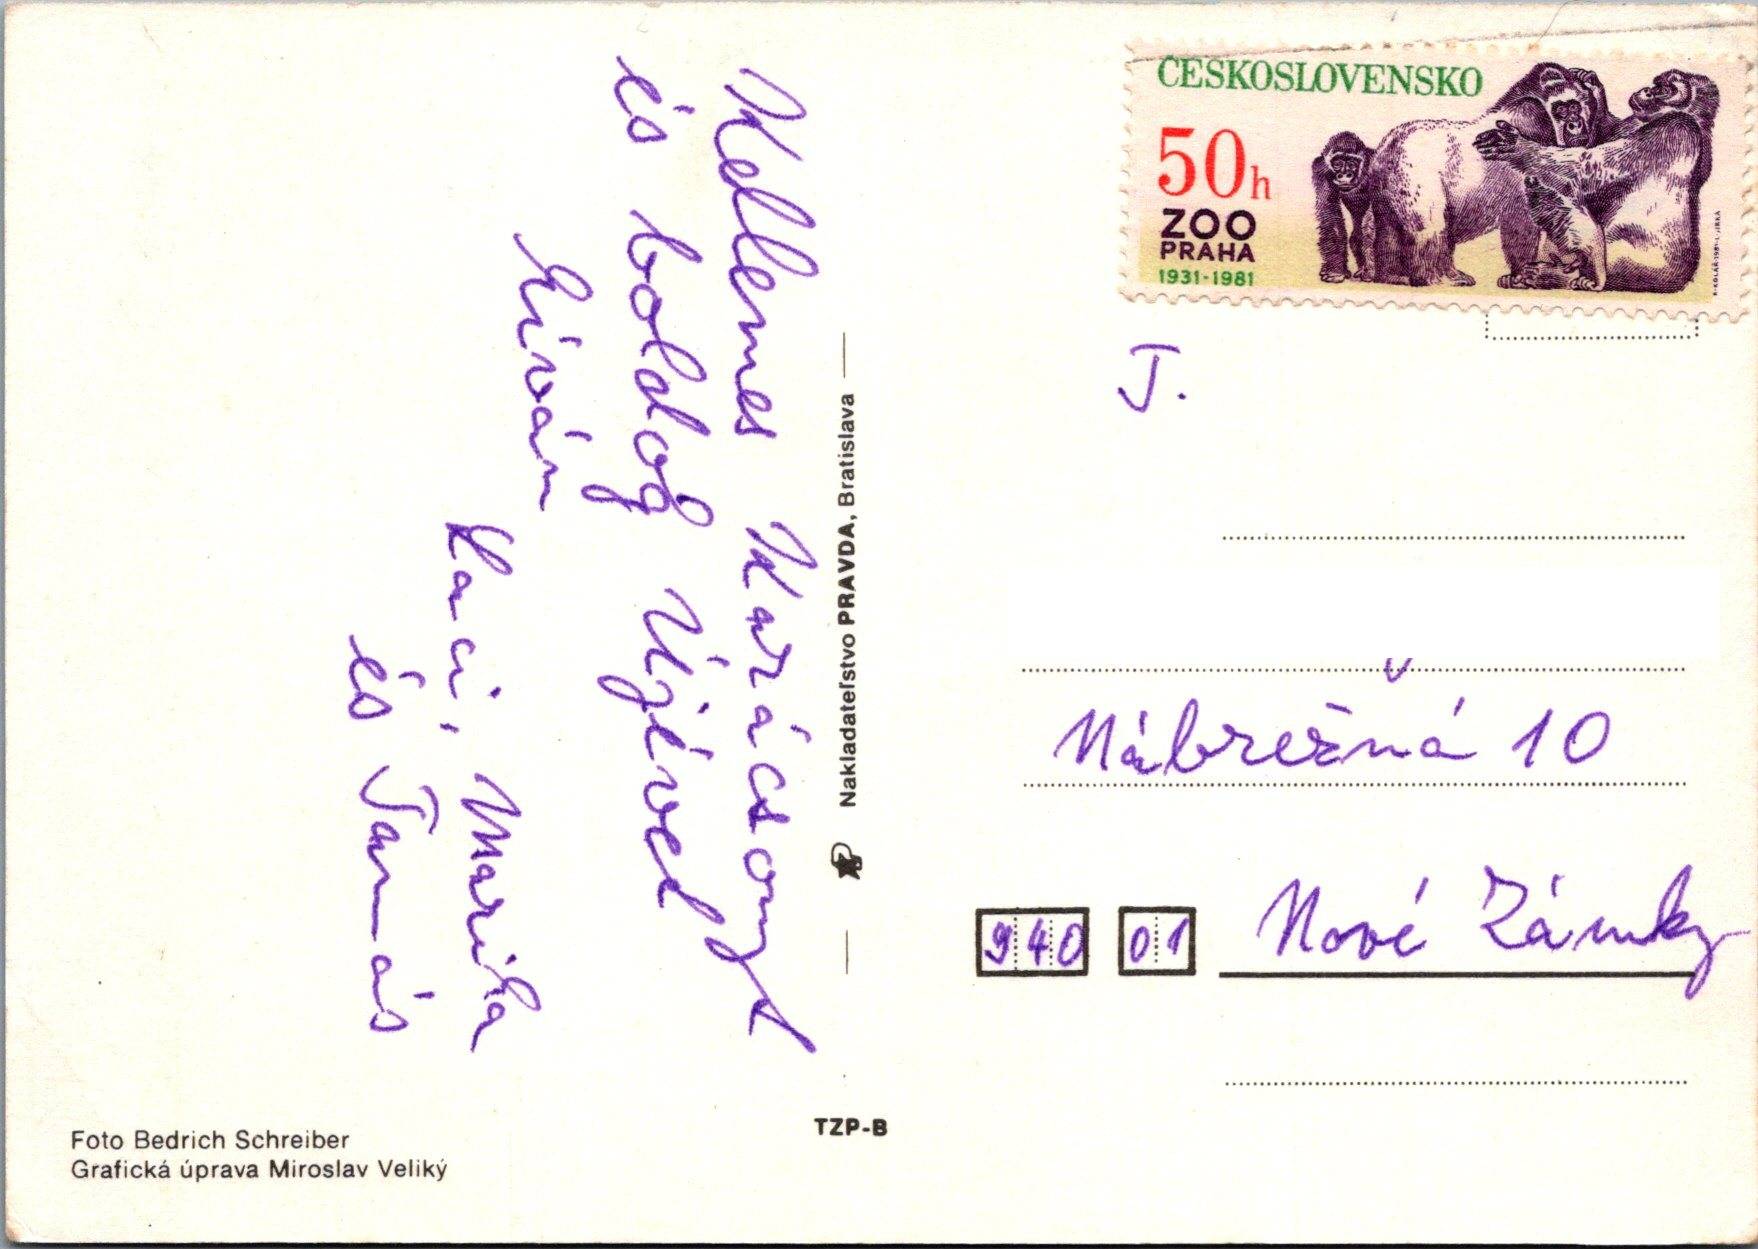 Kellemes Karácsonyt
és boldog Újévet
kíván
Laci, Marika
és Tamás
Nakladateľstvo PRAVDA, Bratislava
TZP-B
Foto Bedrich Schreiber
Grafická úprava Miroslav Veliký
ČESKOSLOVENSKO
50h
ZOO
PRAHA
1931-1981
T.
Nábrežná 10
940 01 Nové Zámky